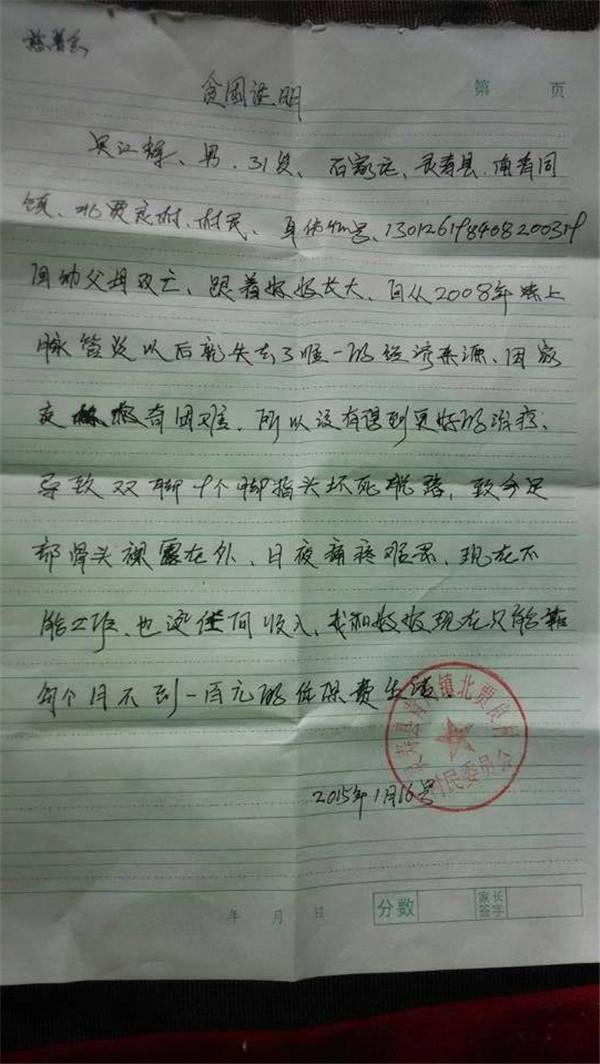 慈善会
贫困证明
第 页
吴江辉、男、31岁、石家庄、灵寿县、南寿同
镇、北贾良村、村民、身份证号、130126198408200319
因幼父母双亡、跟着奶奶长大、自从2008年患上
脉管炎以后就失去了唯一的经济来源、因家
庭 有困难、所以没有得到更好的治疗、
导致双脚十个脚指头坏死脱落，致今足
部骨头裸露在外、日夜痛疼难忍、现在不
能工作、也没任何收入、我和奶奶现在只能靠
每个月不到一百元的低保费生活、
灵寿县 镇北贾良村
村民委员会
2015年1月16号
年 月 日
分数
家长
签字